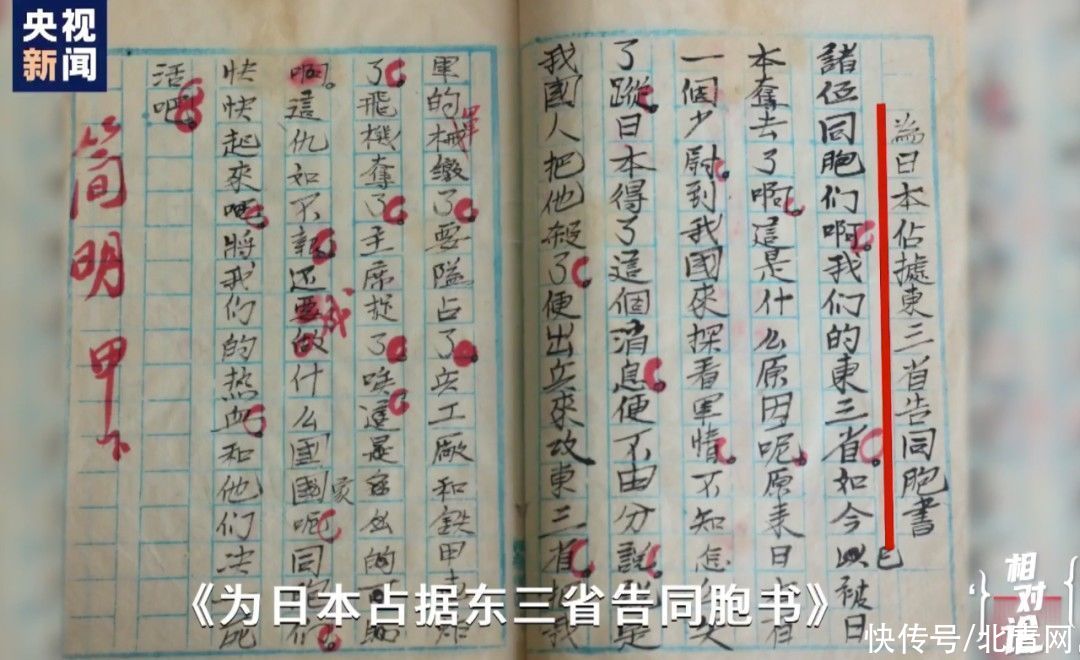 央视
新闻
為日本佔據東三省告同胞書
諸位同胞们啊。我们的東三省。如今以已被日
本奪去了啊。這是什么原因呢。原来日有
一個少尉。到我國來探看軍情。不知怎失
了蹤。日本得了這個消息。便不由分說。是
我國人把他殺了。便出兵來攻東三省。我
軍的械繳了。要隘占了。兵工廠和鉄甲炸
了。飛機奪了。主席捉了。唉。這是的可
啊。這仇如不報。还要做成什么國國家呢。同胞们。
快快起來吧。將我们的热血。和他们决死
活吧。
简明 甲下
《为日本占据东三省告同胞书》
相对论
快传号/北青网